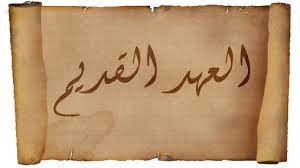 العهد القديم